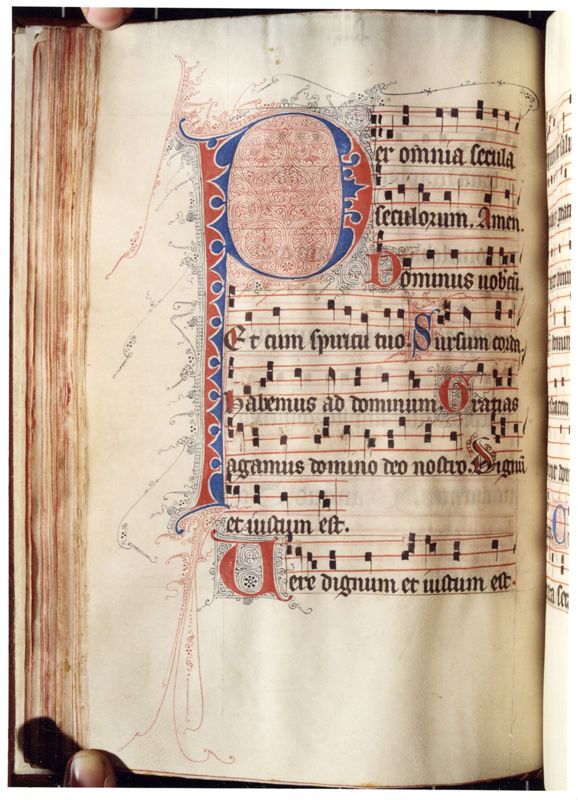 Per omnia secula
seculorum. Amen.
Dominus uobcū.
Et cum spiritu tuo. Sursum corda.
Habemus ad dominum. Gratias
agamus domino deo nostro. Dignū
et iustum est.
Uere dignum et iustum est.